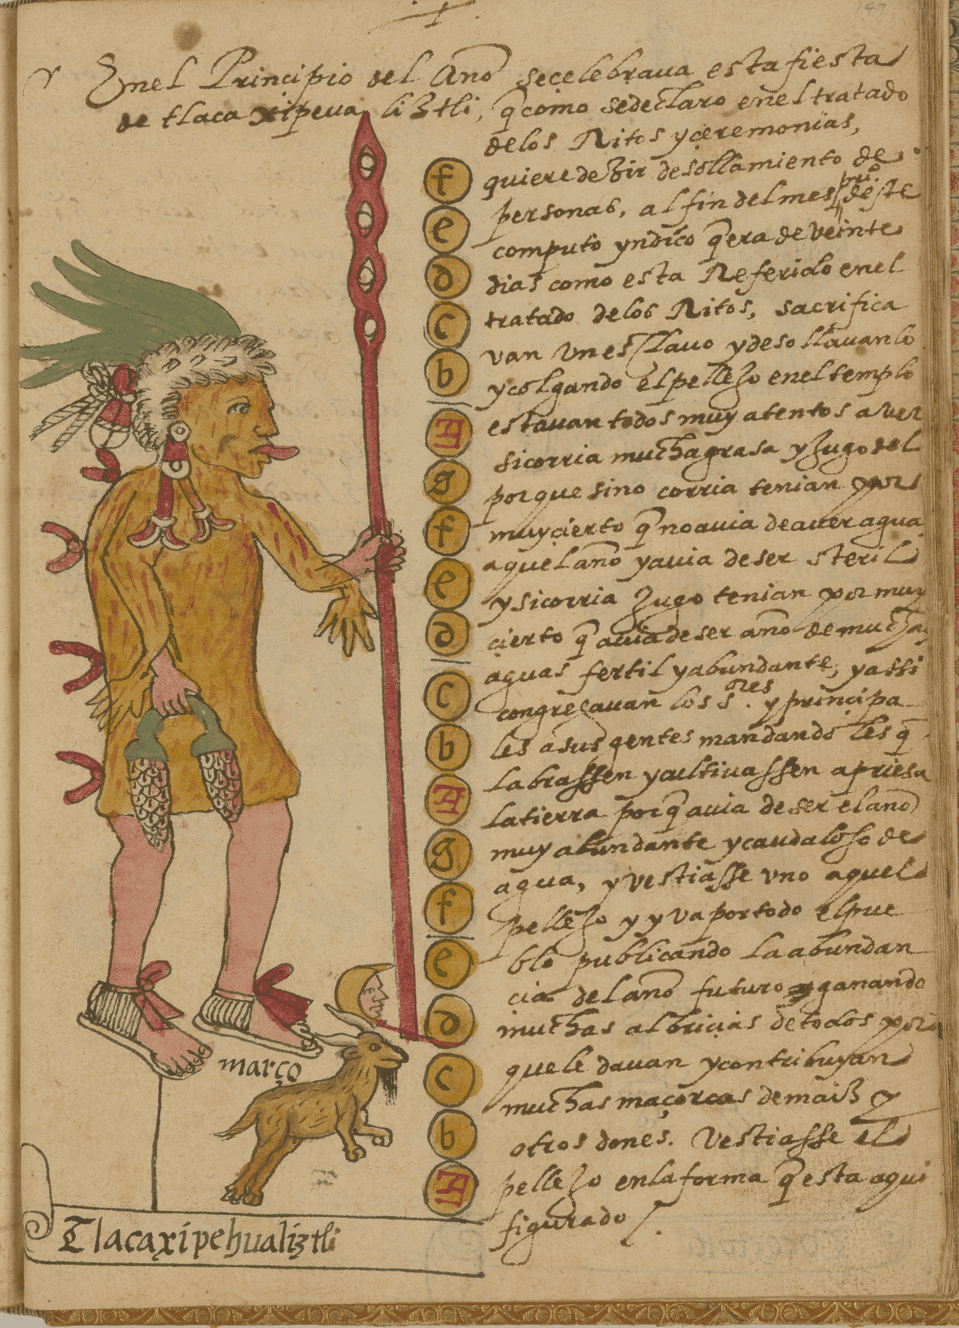 147
Enel Principio del Año secelebraua esta fiesta
de tlacaxipeua liztli, q̄ como sedeclaro enel tratado
delos Ritos y ceremonias,
quiere dezir desollamiento de
personas, al fin del mes prio deste
computo yndico q̄ era de veinte
dias como esta Referido enel
tratado delos Ritos, sacrifica
van vn esclauo y desollauanlo
y colgando el pellejo enel templo
estauan todos muy atentos a ver
si corria mucha grasa y jugo del
porque sino corria tenian por
muy cierto q̄ no auia de auer agua
aquel año y auia de ser steril
y si corria Zugo tenian por muy
cierto q̄ auia de ser año de mucha
aguas fertil y abundante, y assi
congregauan los s.ores y principa
les a sus gentes mandando les q̄
labrassen y cultiuassen apriesa
la tierra porq̄ auia de ser el año
muy abundante y caudaloso de
agua, y vestiasse vno aquel
pellejo y yva por todo el pue
blo publicando la abundan
cia del año futuro y ganando
muchas albricias de todos por
que le dauan y contribuyan
muchas maçorcas de maiz y
otros dones. Vestiasse el
pellejo en la forma q̄ esta aqui
figurado
f
e
d
c
b
A
g
f
e
d
c
b
A
g
f
e
d
c
b
A
março
Tlacaxipehualiztli